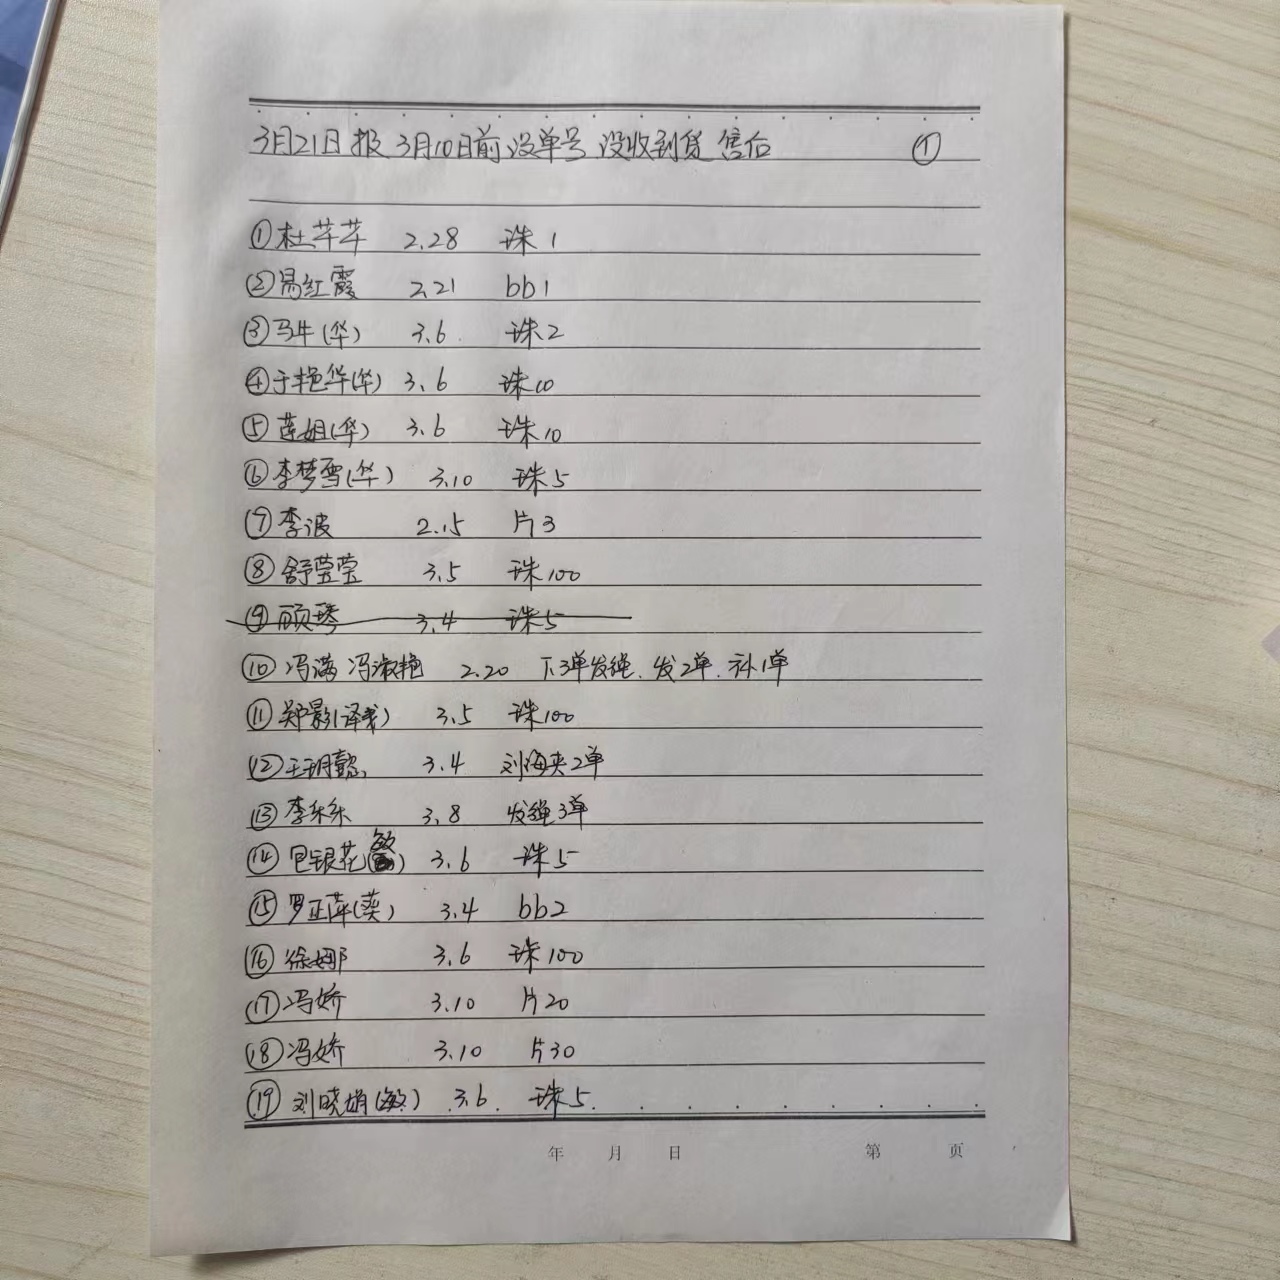 3月21日报 3月10日前没单号 没收到货 售后 ①
①杜芊芊 2.28 珠1
②易红霞 2.21 bb1
③马牛(华) 3.6 珠2
④于艳华(华) 3.6 珠10
⑤莲姐(华) 3.6 珠10
⑥李梦雪(华) 3.10 珠5
⑦李波 2.15 片3
⑧舒莹莹 3.5 珠100
⑨顾琴 3.4 珠5
⑩冯满 冯淑艳 2.20 下3单发绳.发2单.补1单
⑪郑影(译我) 3.5 珠100
⑫王玥懿 3.4 刘海夹2单
⑬李乐乐 3.8 发绳3单
⑭包银花(敏) 3.6 珠5
⑮罗正萍(英) 3.4 bb2
⑯徐娜 3.6 珠100
⑰冯娇 3.10 片20
⑱冯娇 3.10 片30
⑲刘晓娟(敏) 3.6 珠5
年 月 日 第 页